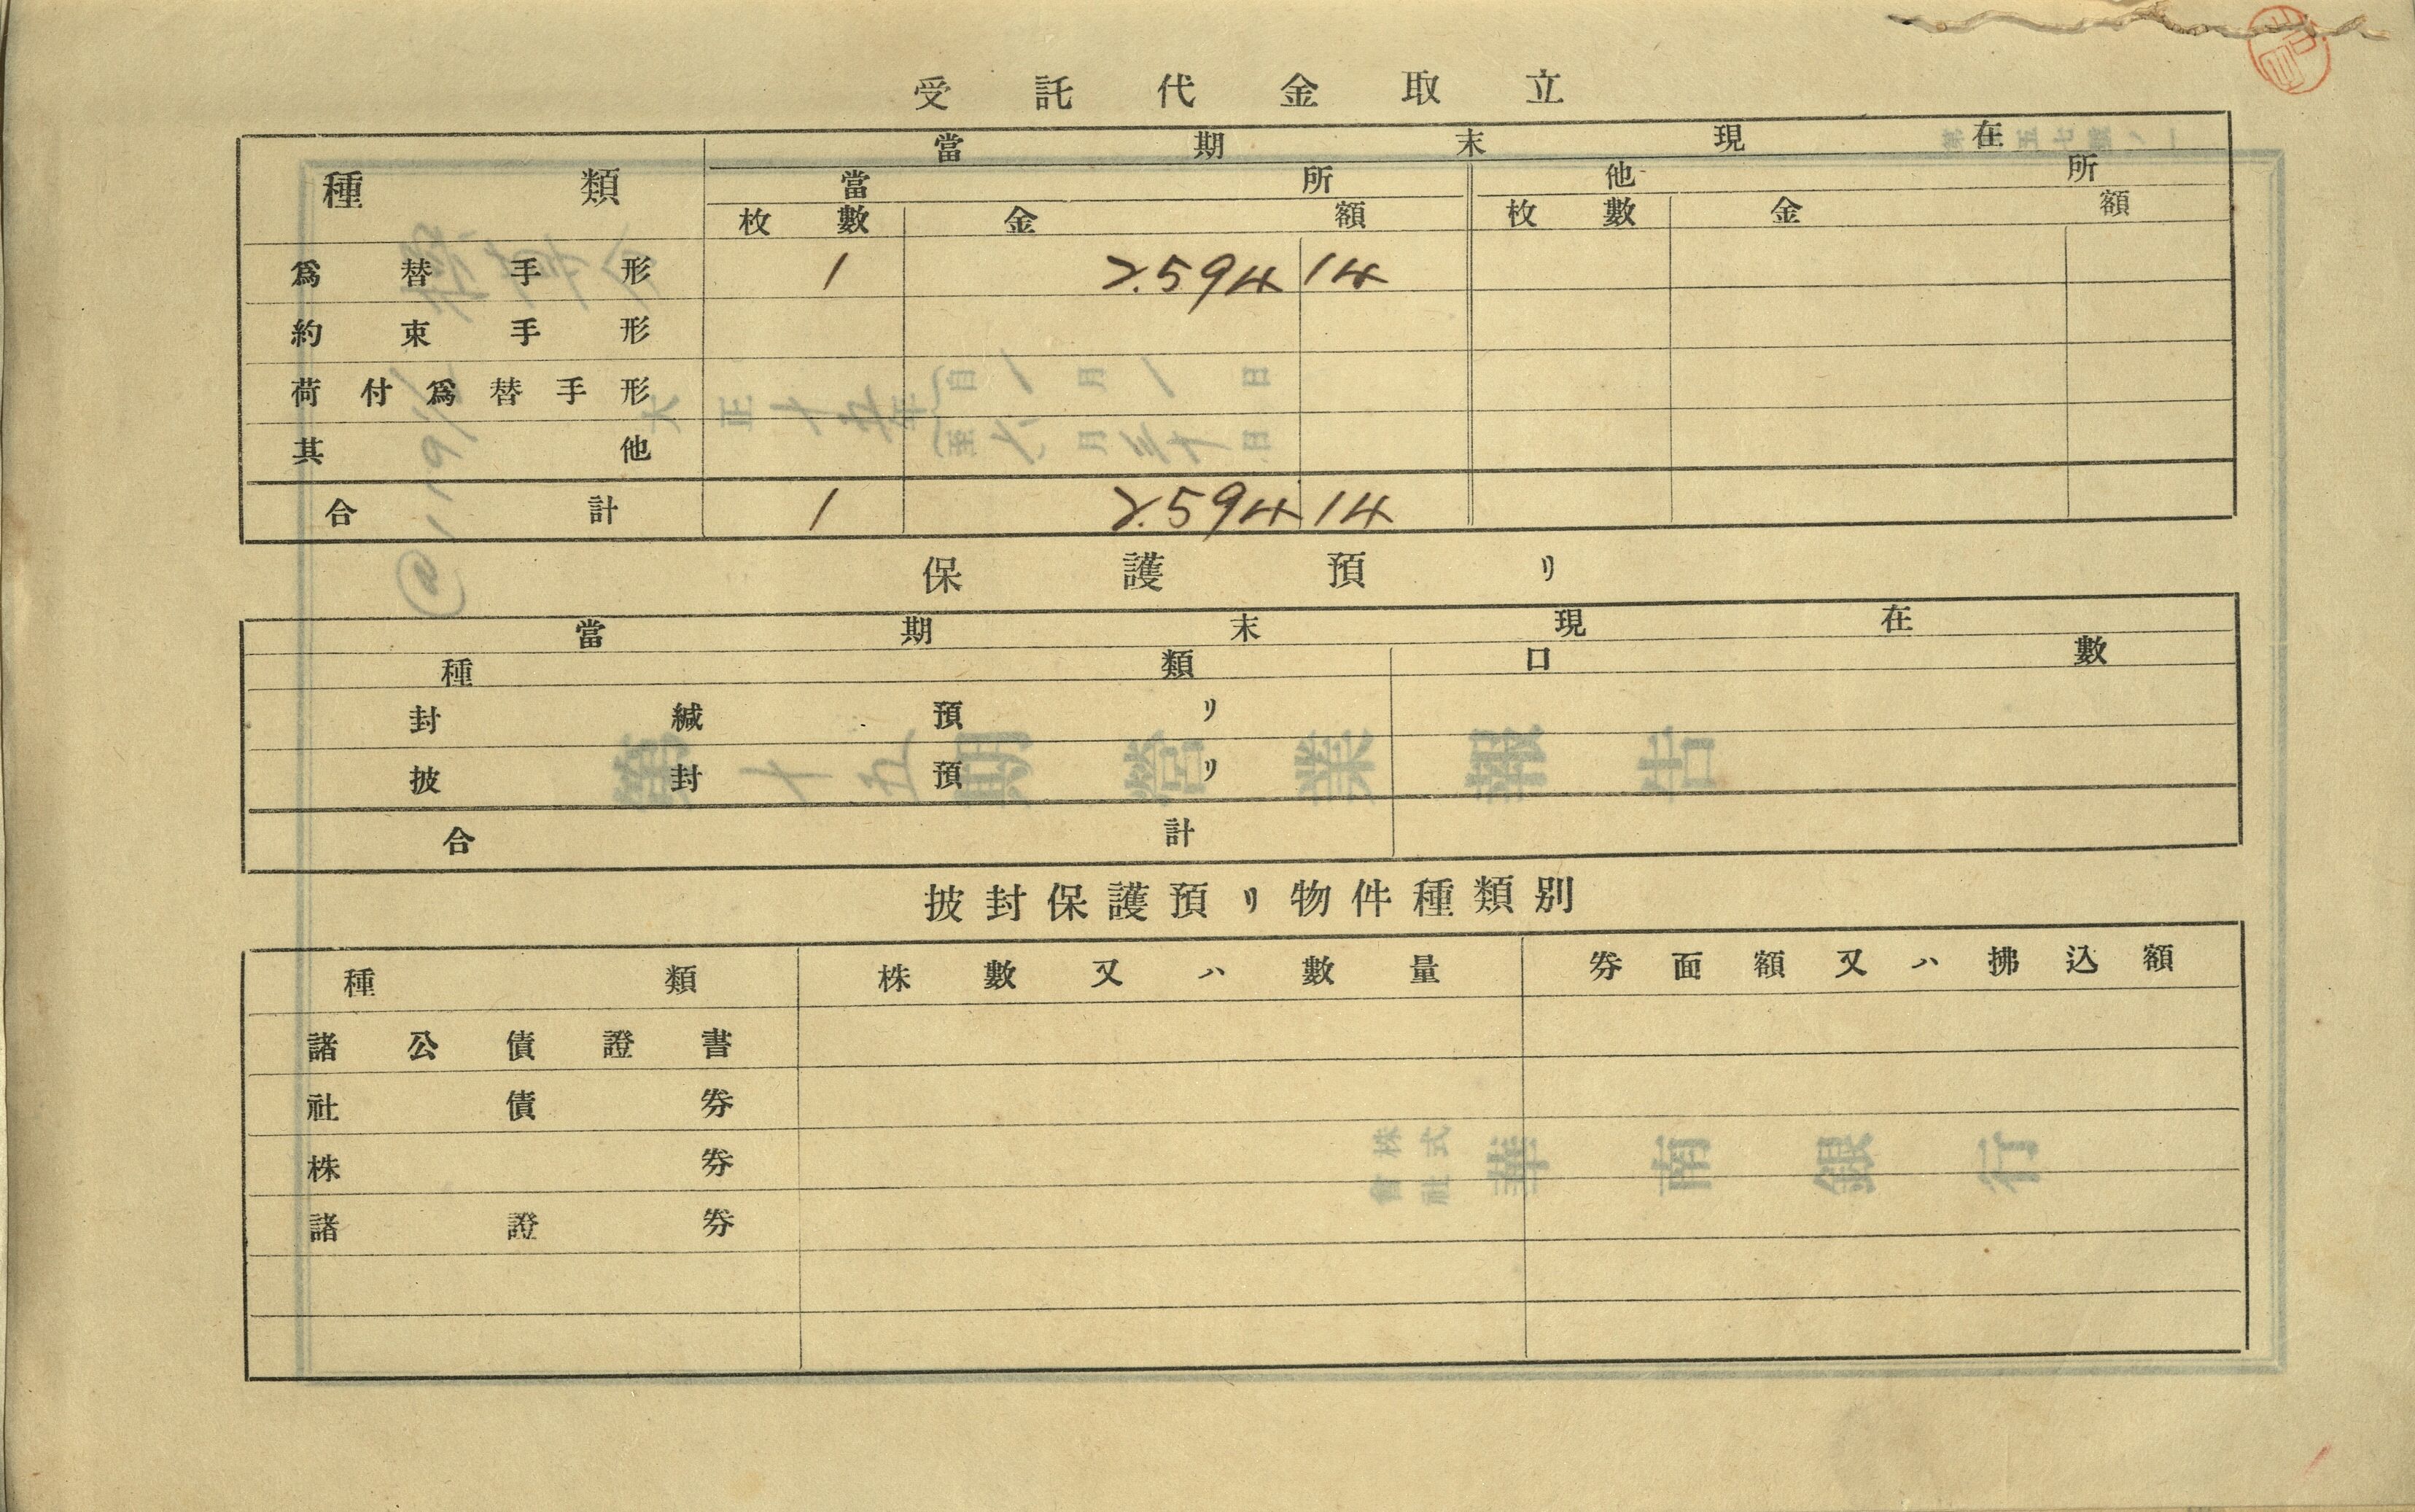 受託代金取立
種類 當期末現在
當所 他所
枚數 金額 枚數 金額
爲替手形 1 2.594 14
約束手形
荷付爲替手形
其他
合計 1 2.594 14
保護預リ
當期末現在
種類 口數
封緘預リ
披封預リ
合計
披封保護預リ物件種類別
種類 株數又ハ數量 券面額又ハ拂込額
諸公債證書
社債券
株券
諸證券
第十五期營業報告
大正十五年 自1月1日 至六月三十日
株式會社 華南銀行